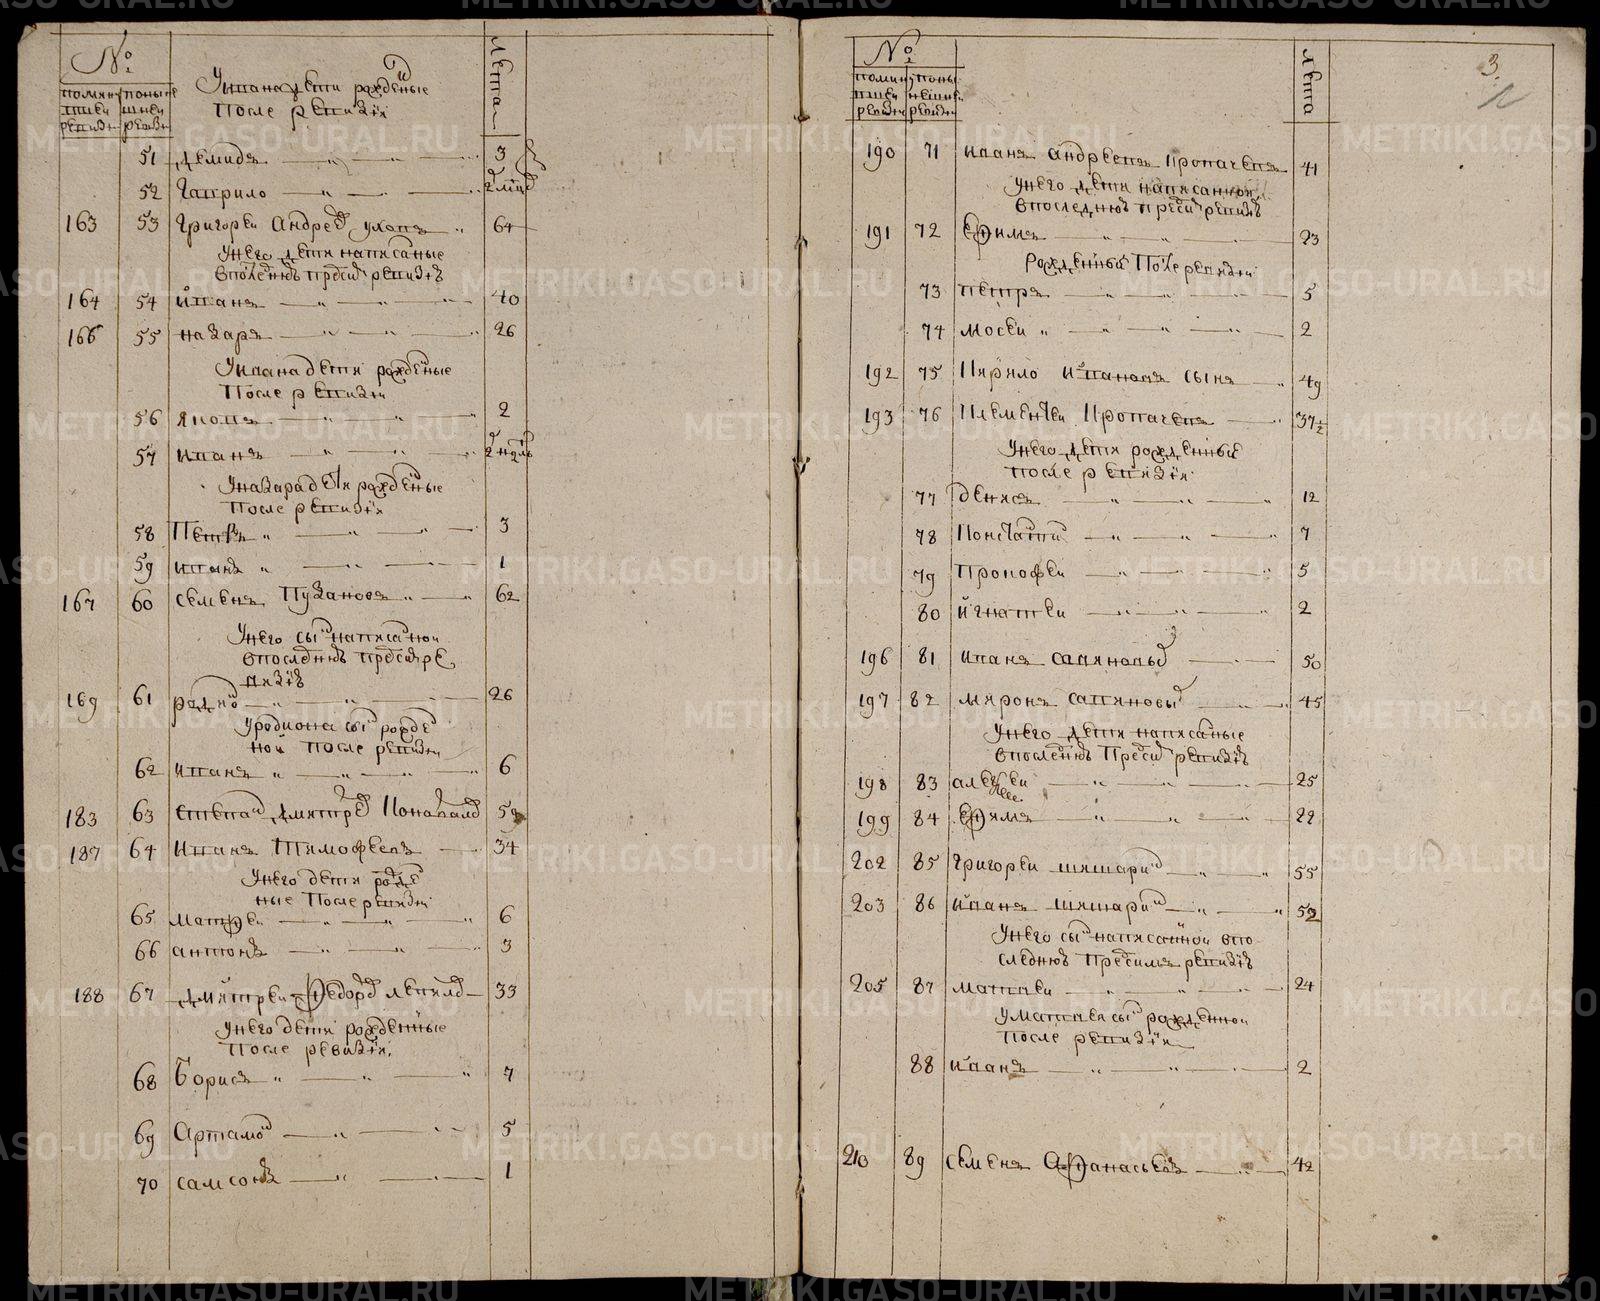 №
помину
вшей
ревизи
понынѣ
шней
ревизи
Уивана дети рожденые
После ревизiи
лѣта
51 демидъ 3
52 Гаврило 2 мцъ
163 53 Григореи Андреев 64
Унего дети написаные
впоследнюю пред сим ревизiю
164 54 иванъ 40
166 55 назаръ 26
Уивана дети рожденые
После ревизiи
56 яковъ 2
57 иванъ 2 ндль
Уназара дети рожденые
После ревизiи
58 Петръ 3
59 иванъ 1
167 60 семенъ Пузановъ 62
Унего сын написанои
впоследнюю пред сим ре
визiю
169 61 родион 26
Уродиона сын рожде
нои После ревизiи
62 иванъ 6
183 63 степан дмитреев Коновалов 59
187 64 Иванъ Тимофеевъ 34
Унего дети рожде
ные После ревизiи
65 матвеи 6
66 антонъ 3
188 67 дмитреи Федоров 33
Унего дети рожденные
После ревизiи
68 Борисъ 7
69 Артамон 5
70 самсонъ 1
3
№
помину
вшей
ревизи
поны
нешней
ревизи
лѣта
190 71 иванъ андреевъ Кропачевъ 41
Унего дети написаннои
впоследнюю пред сим ревизiю
191 72 Ефимъ 23
Рожденныи После ревизiи
73 петръ 5
74 мосеи 2
192 75 Кирило ивановъ сынъ 49
193 76 Клементеи Кропачевъ 37½
Унего дети рожденные
после ревизiи
77 денисъ 12
78 Константин 7
79 Прокофеи 5
80 игнатеи 2
196 81 иванъ 50
197 82 миронъ 45
Унего дети написаные
впоследнюю Пред сим ревизiю
198 83 алексеи 25
199 84 Ефимъ 22
202 85 Григореи шишарин 55
203 86 иванъ шишарин 52
Унего сын написаннои впо
следнюю Пред симъ ревизiю
205 87 матвеи 24
Уматвея сын рожденнои
После ревизiи
88 иванъ 2
210 89 семенъ Афанасьевъ 42